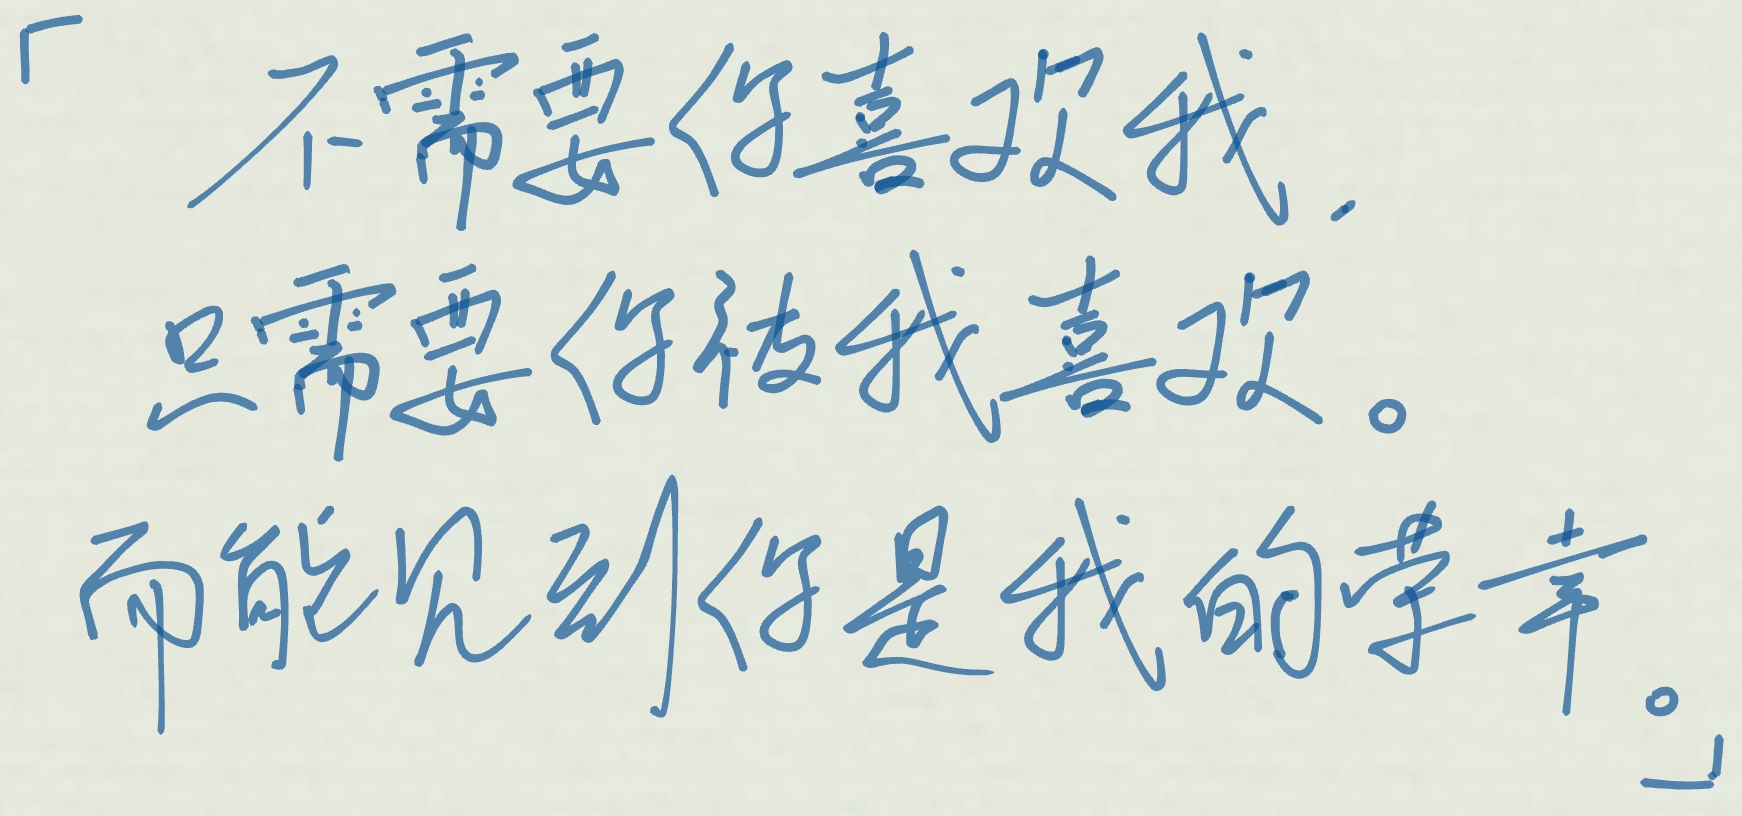 「不需要你喜欢我，
只需要你被我喜欢。
而能见到你是我的荣幸。」